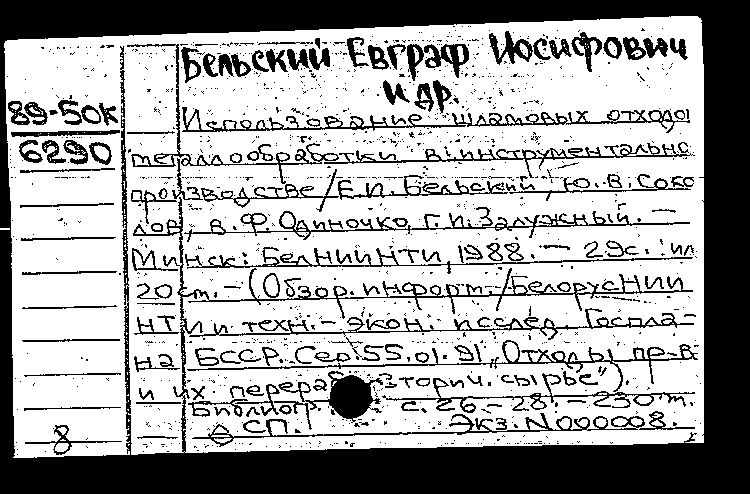 Бельский Евграф Иосифович
и др.
89-50к
6290
Использование шламовых отходо
металлообработки в инструментально
производстве / Е.И. Бельский, Ю.В. Соко
лов, В.Ф. Одиночко, Г.И. Залужный. —
Минск: БелНИИНТИ, 1988. — 29с.: ил
20 см. — (Обзор. информ. / Белорус НИИ
НТИ и техн.-экон. исслед. Госпла-
на БССР. Сер. 55.01.91 „Отходы пр-в
и их перераб вторич. сырье").
Библиогр. с. 26-28. — 230 т.
СП. Экз. N000008.
8